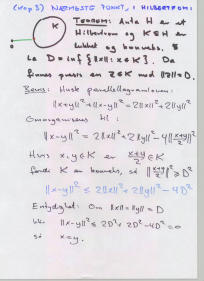 NÆRMESTE PUNKT I HILBERTROM:
K
TEOREM: Anta H er et
Hilbertrom og K ⊆ H er
lukket og konveks. &
La D = inf {||x|| : x ∈ K}. Da
finnes presis en z ∈ K med ||z|| = D.
Bevis: Husk parallellogramloven:
||x+y||² + ||x-y||² = 2||x||² + 2||y||²
Omorganiseres til:
||x-y||² = 2||x||² + 2||y||² - 4||(x+y)/2||²
Hvis x, y ∈ K er (x+y)/2 ∈ K
fordi K er konveks, så ||(x+y)/2||² ≥ D²
||x-y||² ≤ 2||x||² + 2||y||² - 4D²
Entydighet: Om ||x|| = ||y|| = D
blir ||x-y||² ≤ 2D² + 2D² - 4D² = 0
så x = y.